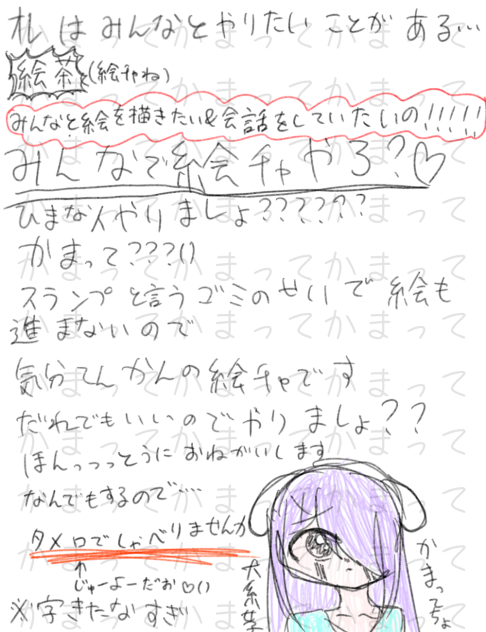 私はみんなとやりたいことがある…
絵茶(絵チャね)
みんなと絵を描きたい&会話をしていたいの!!!!!
みんなで絵チャやろ?♡
ひまな人やりましょ??????
かまって???()
スランプと言うゴミのせいで絵も
進まないので
気分てんかんの絵チャです
だれでもいいのでやりましょ??
ほんっっっとうにおねがいします
なんでもするので…
タメ口でしゃべりませんか
↑
じゅーよーだお♡()
※字きたなすぎ
かまっちょ
かまってかまってかまって
かまってかまってかまって
かまってかまってかまって
かまってかまってかまって
かまってかまってかまって
かまってかまってかまって
かまってかまってかまって
かまってかまってかまって
かまってかまってかまって
かまってかまってかまって